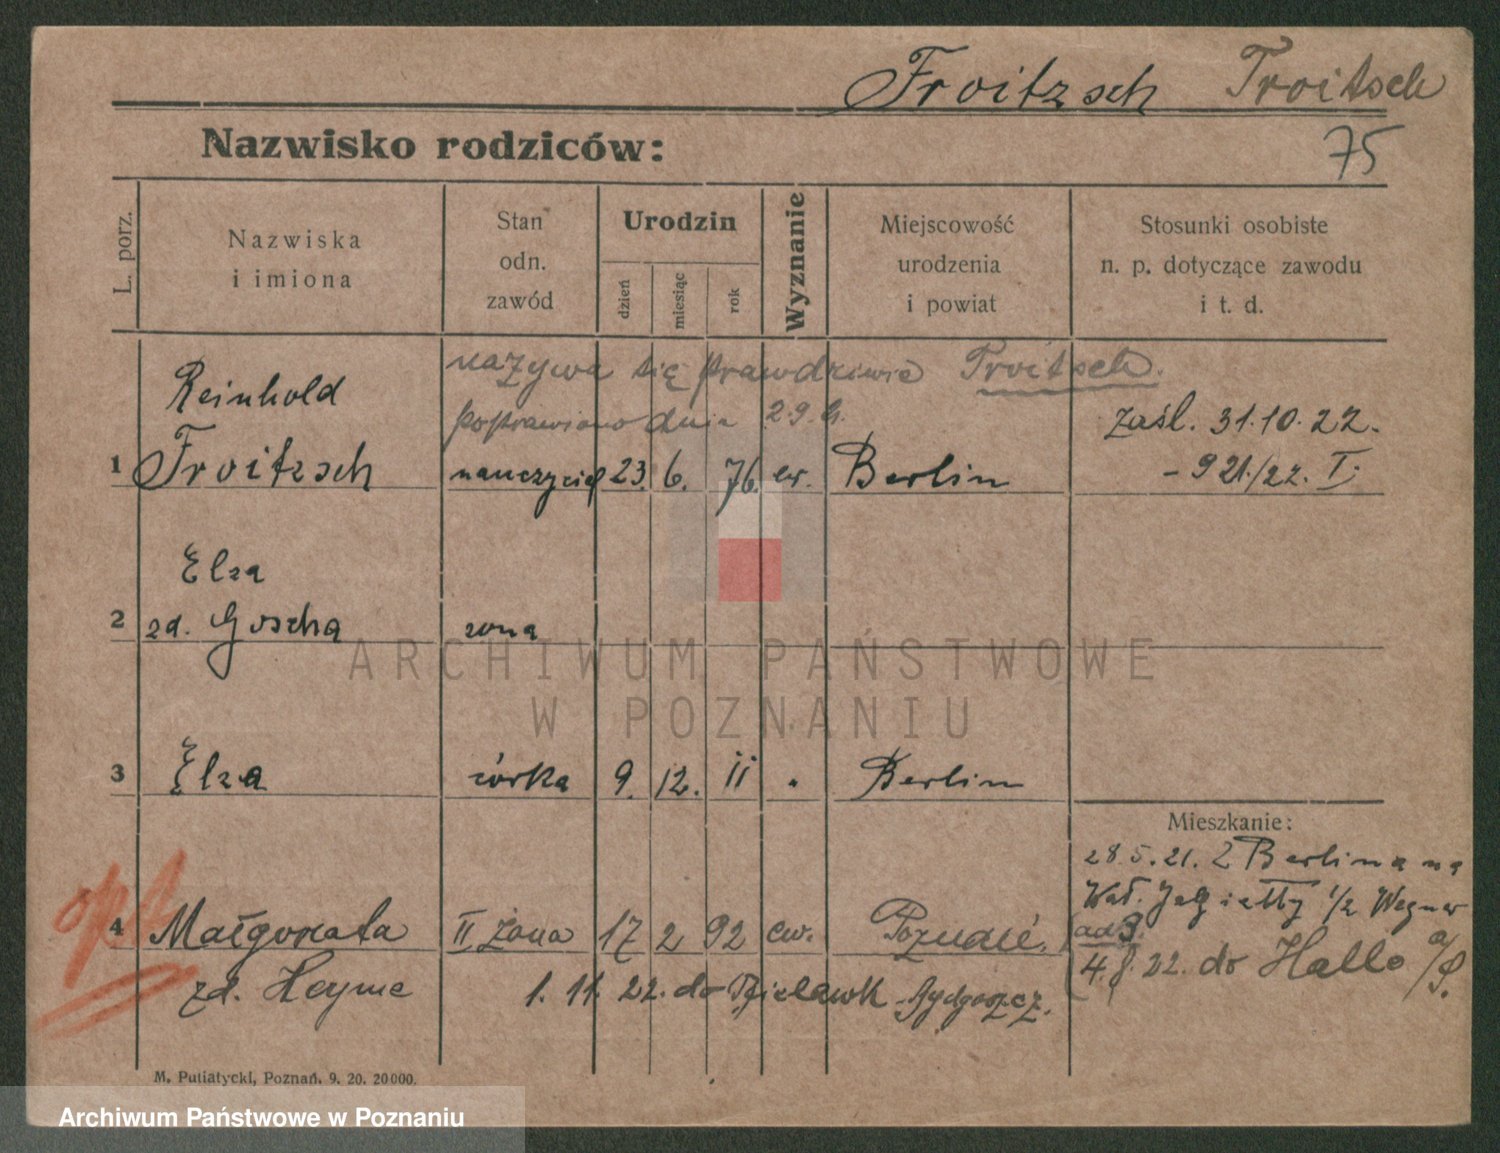 Froitzsch Troitsch
Nazwisko rodziców:
75
L. porz.
Nazwiska
i imiona
Stan
odn.
zawód
Urodzin
dzień
miesiąc
rok
Wyznanie
Miejscowość
urodzenia
i powiat
Stosunki osobiste
n. p. dotyczące zawodu
i t. d.
nazywa się prawdziwie Troitsch.
poprawiono dnia 2.9.
Reinhold
zaśl. 31.10.22.
1 Froitzsch nauczyciel 23. 6. 76. ew. Berlin
- 921/22. I.
Elza
2 zd. Goscha żona
ARCHIWUM PAŃSTWOWE
W POZNANIU
3 Elza córka 9. 12. 11 Berlin
Mieszkanie:
28.5.21. Z Berlina na
Wał. Jagiełły 1/2 Wegner
opt
4 Małgorzata II żona 17 2 92 ew. Poznań.
ad 3.
4.8.22. do Halle a/S.
zd. Heyme
1. 11. 22. do Bielawk Bydgoszcz.
M. Putiatycki, Poznań. 9. 20. 20000.
Archiwum Państwowe w Poznaniu